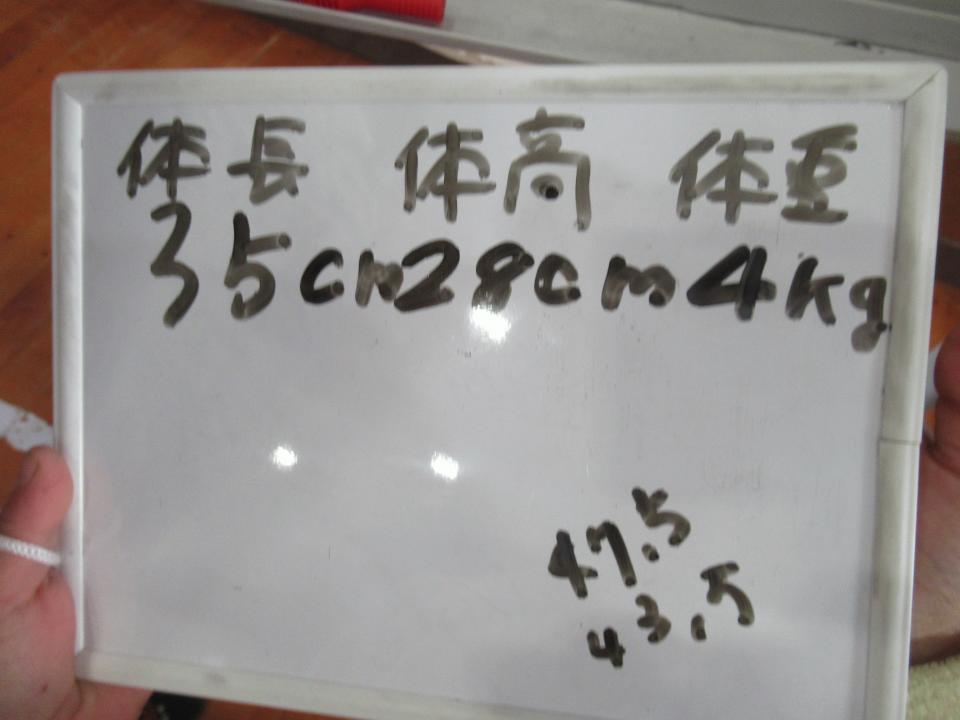 体長 体高 体重
35cm 28cm 4kg
47.5
43.5